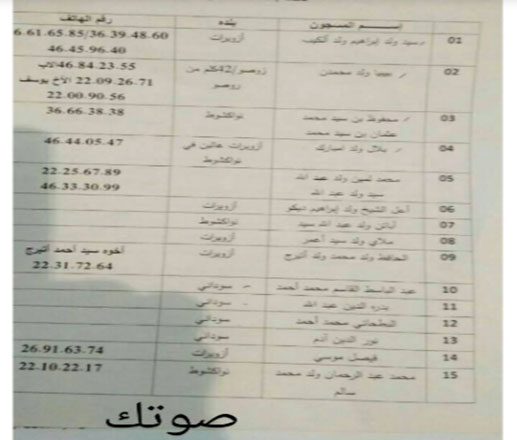 إســـم المسجون بلده رقم الهاتف
01 سيد ولد إبراهيم ولد أزويرات 6.61.65.85/36.39.48.60
46.45.96.40
02 ولد محمدن روصو/42كلم من 46.84.23.55الأب
روصو 22.09.26.71 الأخ يوسف
22.00.90.56
03 محفوظ بن سيد محمد نواكشوط 36.66.38.38
عثمان بن سيد محمد
04 بلال ولد امبارك أزويرات في 46.44.05.47
نواكشوط
05 محمد لمين ولد عبد الله 22.25.67.89
سيد ولد عبد الله 46.33.30.99
06 أحل الشيخ ولد إبراهيم ديكو أزويرات
07 ولد عبد الله سيد نواكشوط
08 ملاي ولد سيد أعمر أزويرات
09 الحافظ ولد محمد ولد أتيرج أزويرات أخوه سيد أحمد أتيرج
22.31.72.64
10 عبد الباسط القاسم محمد أحمد سوداني
11 بدره الدين عبد الله سوداني
12 البطحاني محمد أحمد سوداني
13 نور الدين آدم سوداني
14 فيصل موسي أزويرات 26.91.63.74
15 محمد عبد الرحمان ولد محمد نواكشوط 22.10.22.17
سالم
صوتك